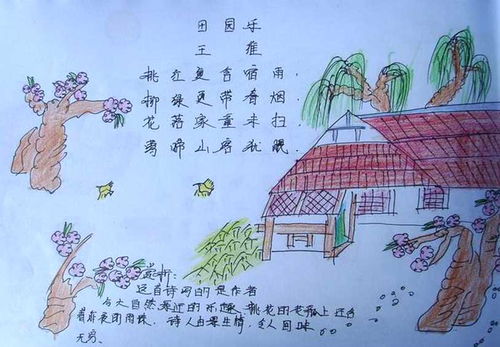 田园乐
王维
桃红复含宿雨,
柳绿更带春烟。
花落家童未扫,
莺啼山客犹眠。
赏析:
这首诗写的是作者
与大自然亲近的乐趣,桃花的花瓣上还含
着昨夜的雨珠,诗人由景生情,令人回味
无穷。